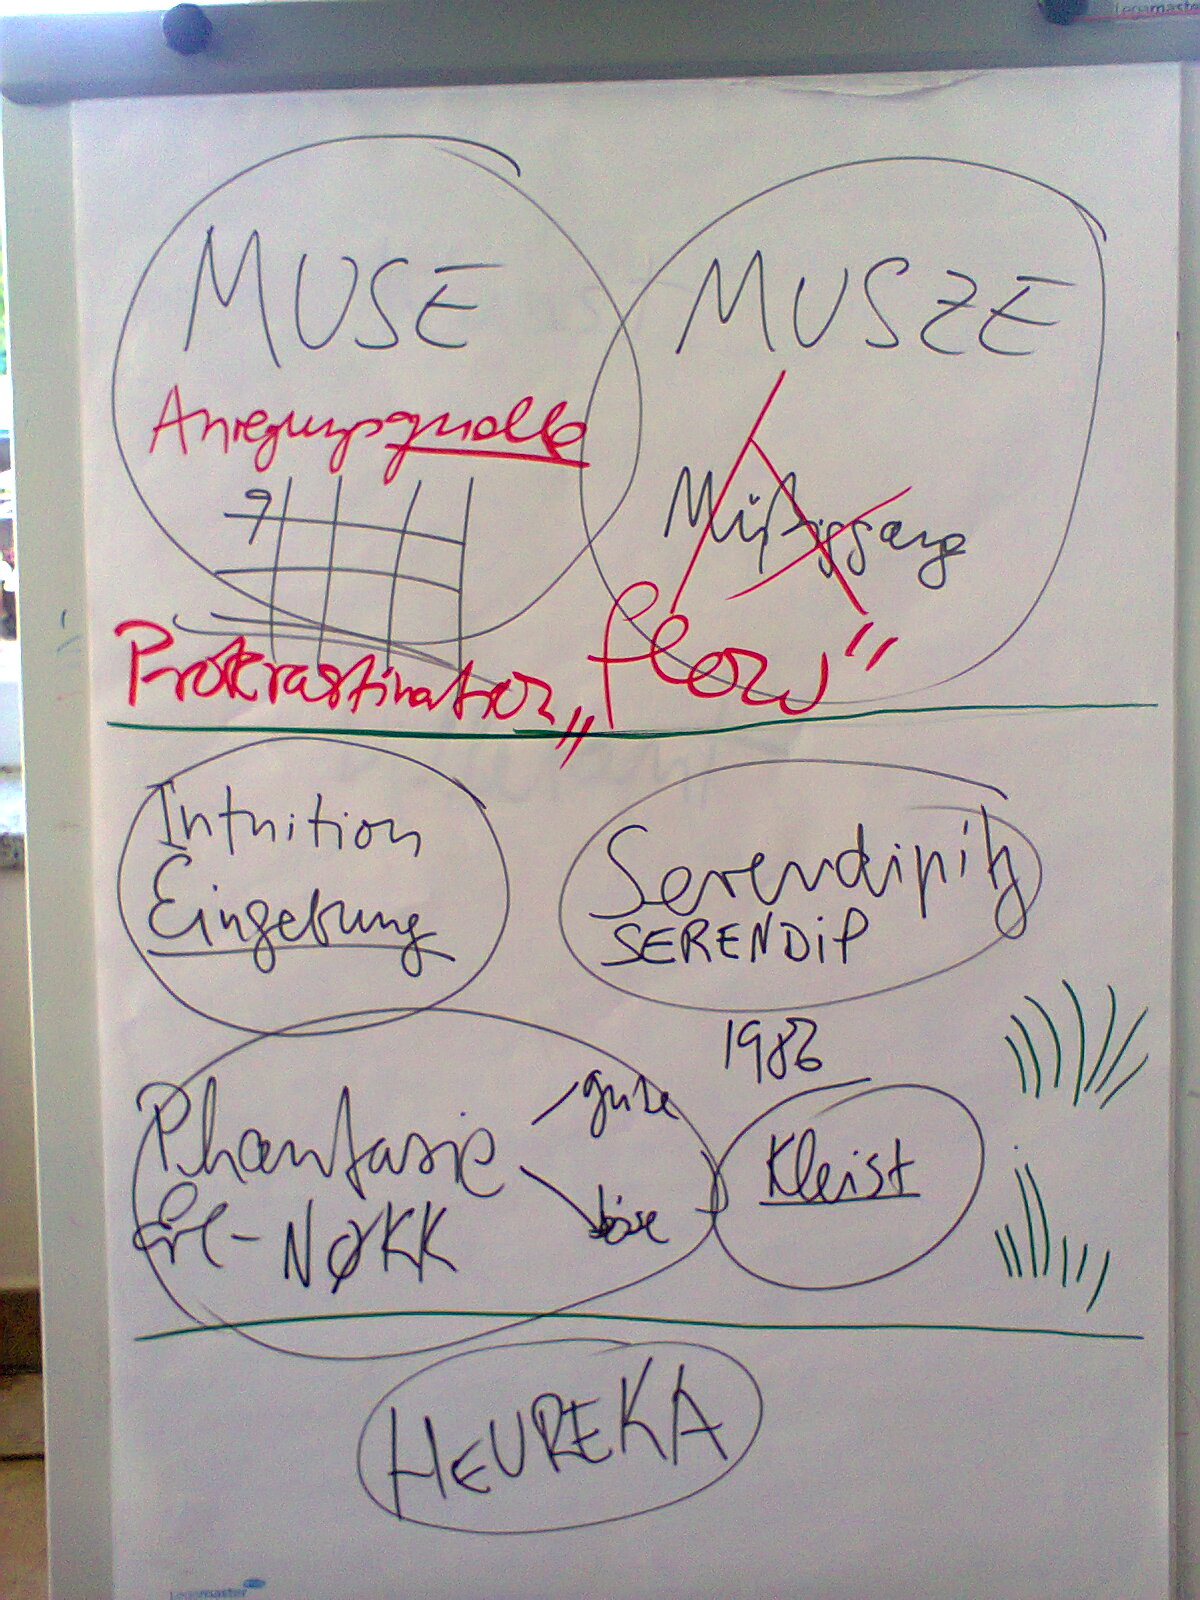 Legamaster
MUSE
MUSZE
Anregungsquelle
9
Müßiggang
Prokrastination
„flow"
Intuition
Eingebung
Serendipity
SERENDIP
Phantasie
gute
böse
NØKK
Kleist
HEUREKA
Legamaster